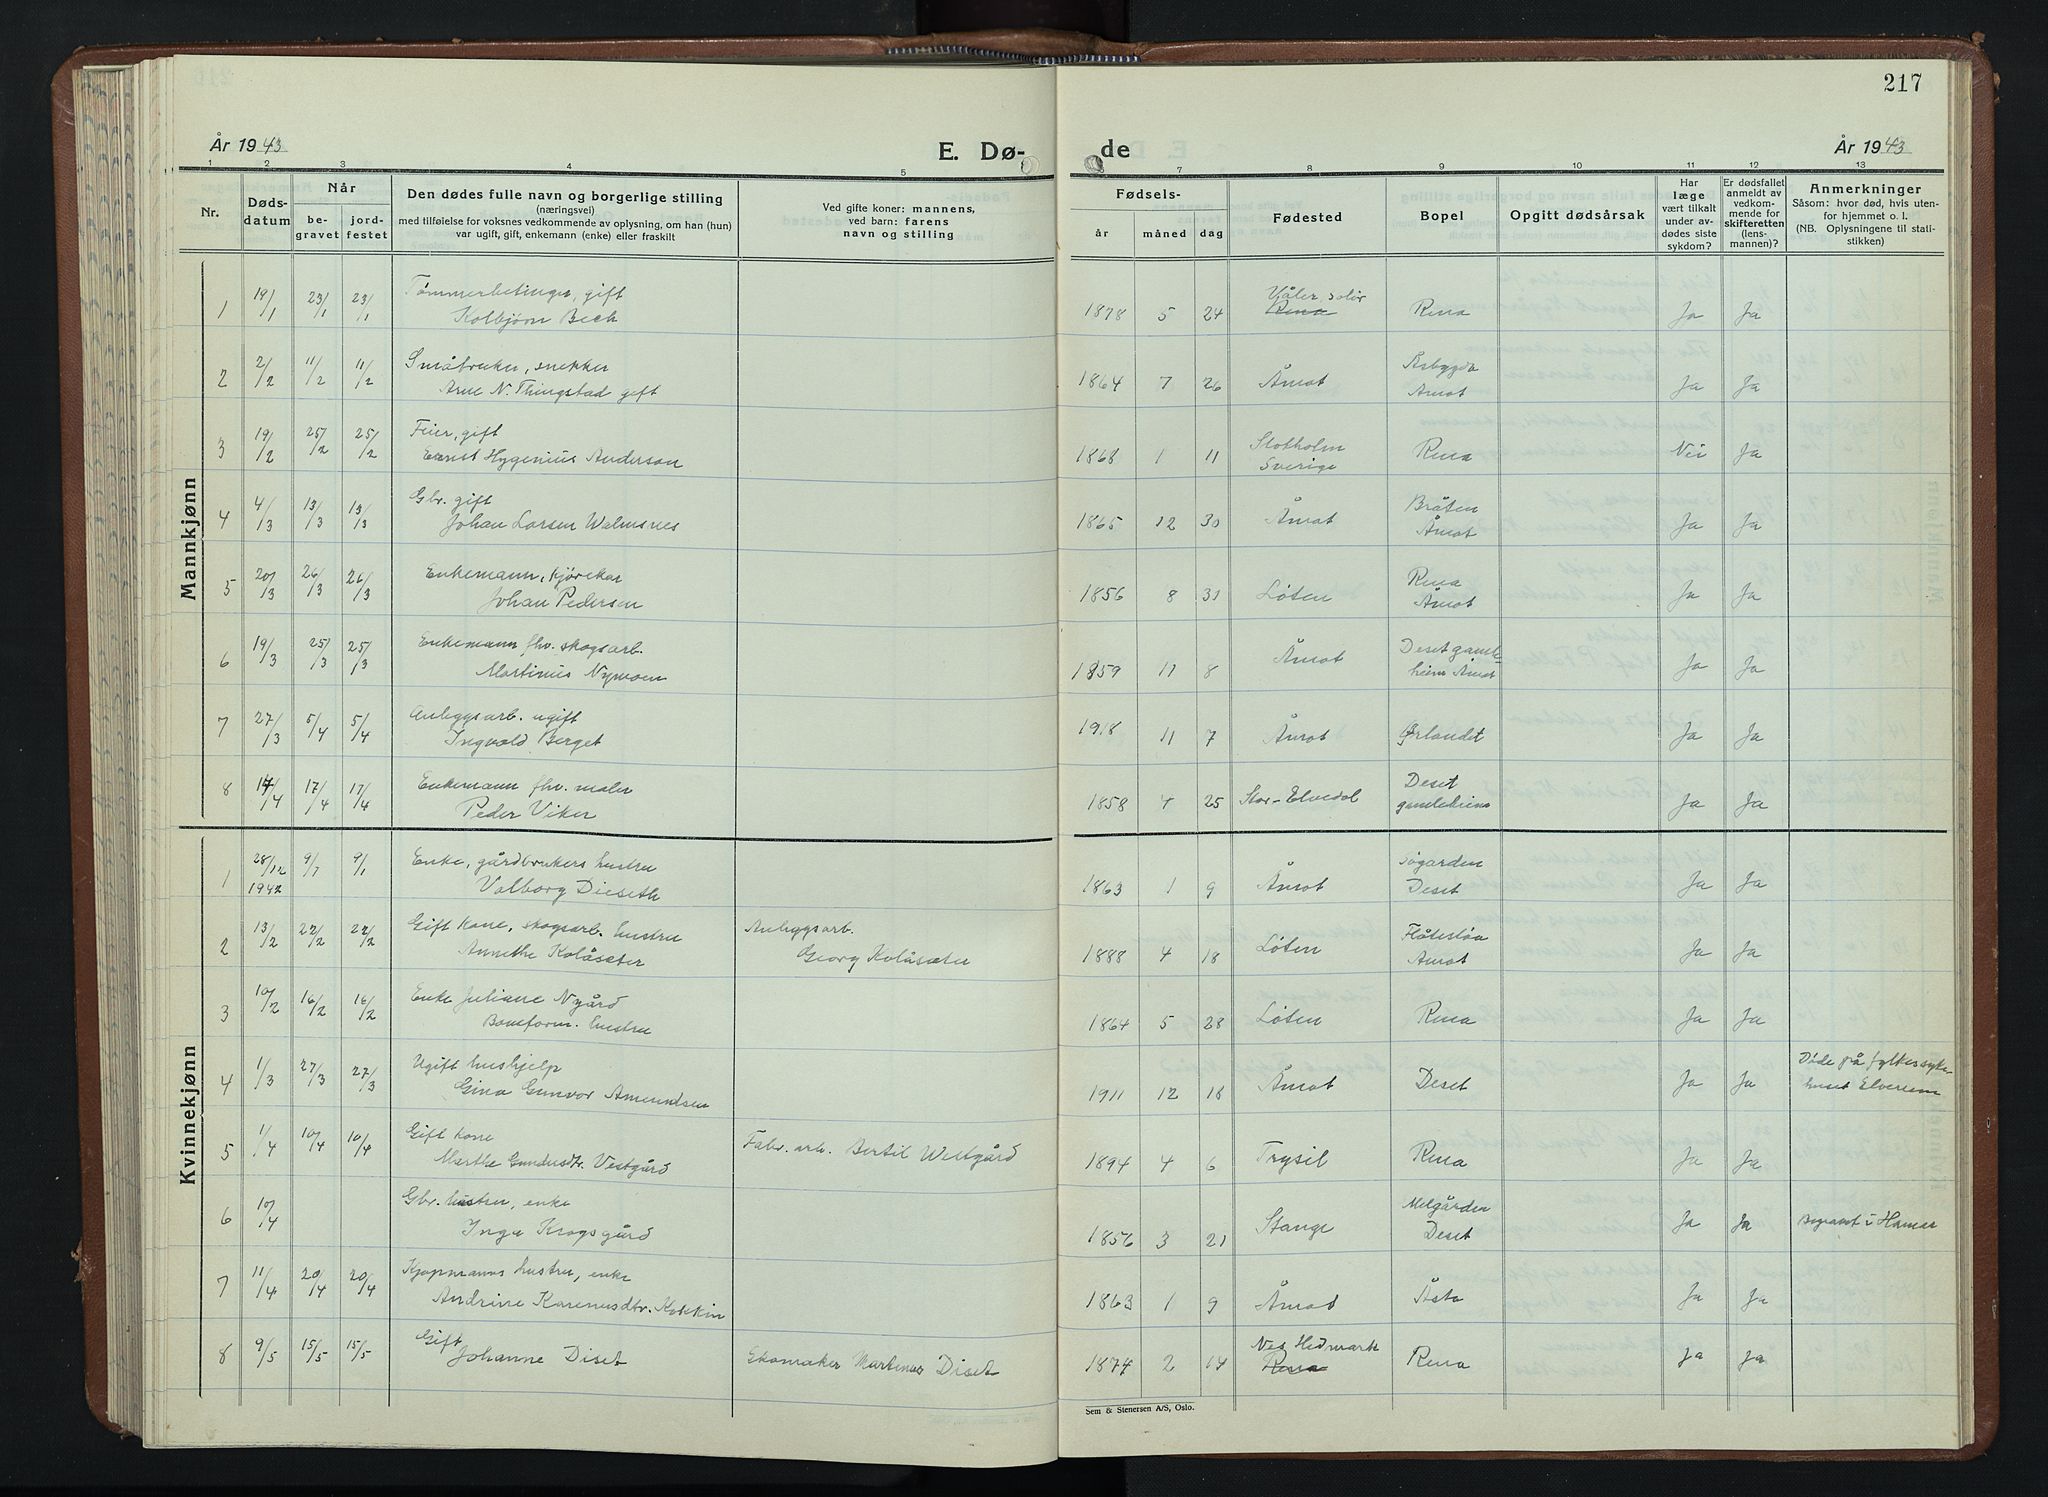 217
År 1943
E. Dø-
de
År 1943
1 2 3 4 5 7 8 9 10 11 12 13
Nr.
Døds-
datum
Når
be-
gravet
jord-
festet
Den dødes fulle navn og borgerlige stilling
(næringsvei)
med tilføielse for voksnes vedkommende av oplysning, om han (hun)
var ugift, gift, enkemann (enke) eller fraskilt
Ved gifte koner: mannens,
ved barn: farens
navn og stilling
Fødsels-
år måned dag
Fødested
Bopel
Opgitt dødsårsak
Har
læge
vært tilkalt
under av-
dødes siste
sykdom?
Er dødsfallet
anmeldt av
vedkom-
mende for
skifteretten
(lens-
mannen)?
Anmerkninger
Såsom: hvor død, hvis uten-
for hjemmet o. l.
(NB. Oplysningene til stati-
stikken)
Mannkjønn
1 19/1 23/1 23/1 gift
Kolbjørn Bech
1878 5 24 Våler, Solør Rena Rena Ja Ja
2 2/2 11/2 11/2 Småbruker, snekker
Arne N. Thingstad gift
1864 7 26 Åmot Åsbygda
Åmot Ja Ja
3 19/2 25/2 25/2 Feier, gift
Ernst Hygenius Anderson
1868 1 11 Stokholm
Sverige Rena Nei Ja
4 4/3 13/3 13/3 Gbr. gift
Johan Larsen
1865 12 30 Åmot Bråten
Åmot Ja Ja
5 20/3 26/3 26/3 Enkemann, kjørekar
Johan Pedersen
1856 8 31 Løten Rena
Åmot Ja Ja
6 19/3 25/3 25/3 Enkemann fhv. skogsarb.
Martinius Nymoen
1859 11 8 Åmot Deset gamle-
heim Åmot Ja Ja
7 27/3 5/4 5/4 Anleggsarb. ugift
Ingvald Berget
1918 11 7 Åmot Ørlandet Ja Ja
8 17/4 17/4 Enkemann fhv. maler
Peder Viker
1858 4 25 Stor-Elvedal Deset
gamleheim Ja Ja
Kvinnekjønn
1 28/12
1942 9/1 9/1 Enke, gårdbrukers hustru
Valborg Dieseth
1863 1 9 Åmot Søgarden
Deset Ja Ja
2 13/2 22/2 22/2 Gift kone, skogsarb. hustru
Annethe Kolåsæter
Anleggsarb.
Georg Kolåsæter
1888 4 18 Løten Flåtestøa
Åmot Ja Ja
3 10/2 16/2 16/2 Enke Juliane Nygård
Baneform. hustru
1864 5 28 Løten Rena Ja Ja
4 1/3 27/3 27/3 Ugift hushjelp
Gina Gunvor Amundsen
1911 12 18 Åmot Deset Ja Ja
Døde på fylkessyke-
huset Elverum
5 1/4 10/4 10/4 Gift kone
Marthe Gundersdtr. Vestgård
Fabr. arb. Bertil Westgård
1894 4 6 Trysil Rena Ja Ja
6 10/4 Gbr. hustru, enke
Inga Krogsgård
1856 3 21 Stange Melgården
Deset Ja Ja
Begravet i Hamar
7 11/4 20/4 20/4 Kjøpmanns hustru, enke
Andrine Karenusdtr. Kolekin
1863 1 9 Åmot Åsta Ja Ja
8 9/5 15/5 15/5 Gift
Johanne Diset
Skomaker Martinus Diset
1874 2 14 Nes Hedmark Rena Rena Ja Ja
Sem & Stenersen A/S, Oslo.